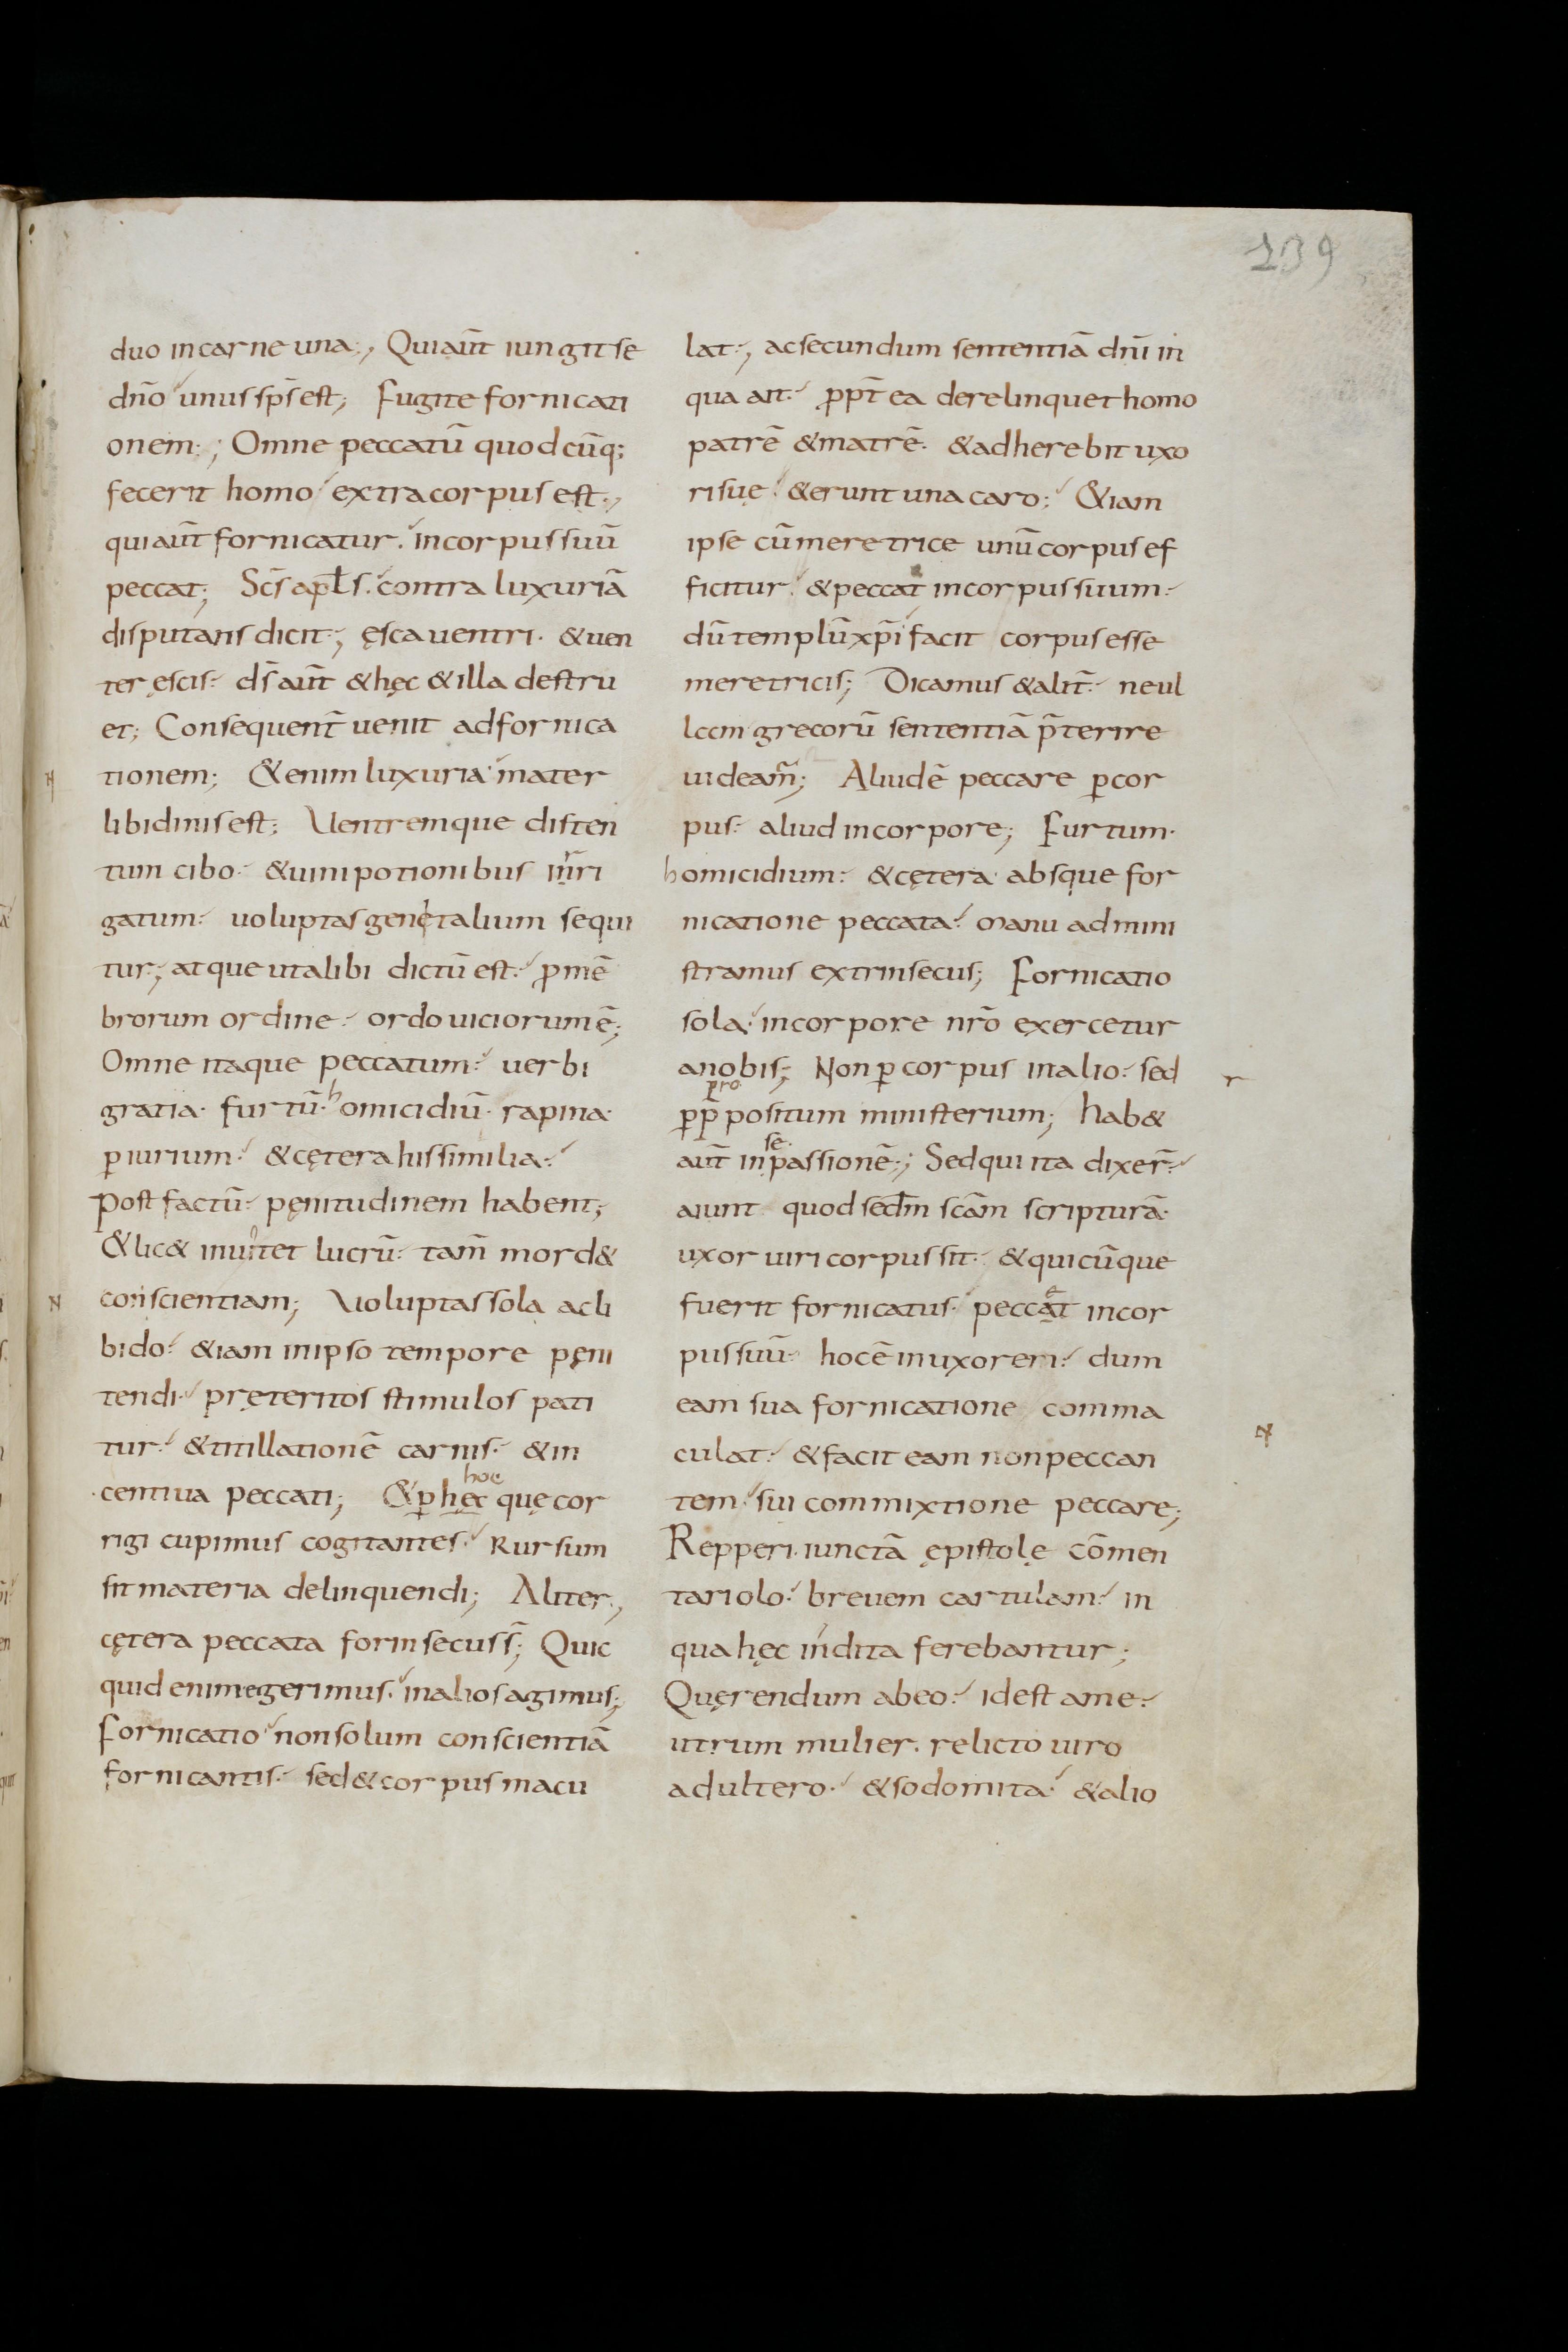 139
duo in carne una;, Qui aūt iungit se
dn̄o unus sp̄s est; Fugite fornicati
onem:; Omne peccatū quodcūq;
fecerit homo extra corpus est.,
qui aūt fornicatur. in corpus suū
peccat; Sc̄s apłs. contra luxuriā
disputans dicit;, ęsca uentri. & uen
ter ęscis. d̄s aūt & hęc & illa destru
et; Consequent̄ uenit ad fornica
tionem; &enim luxuria mater
libidinis est; Uentremque disten
tum cibo. & uini potionibus inrri
gatum. uoluptas genętalium sequi
tur;, atque ut alibi dictū est. ꝓ mē
brorum ordine. ordo uiciorum ē;
Omne itaque peccatum. uerbi
gratia. furtū. homicidiū. rapina.
ꝑiurium. & cętera his similia.
Post factū. pęnitudinem habent;
& lic& inuitet lucrū. tam̄ mord&
conscientiam; Uoluptas sola ac li
bido. &iam in ipso tempore pęni
tendi. pręteritos stimulos pati
tur. & titillationē carnis. & in
centiua peccati; & ꝑ hęc quę cor
hoc
rigi cupimus cogitantes. Rursum
sit materia delinquendi; Aliter.,
cętera peccata forinsecus s̄; Quic
quid enim egerimus. in alios agimus;
Fornicatio non solum conscientiā
fornicantis. sed & corpus macu
lat;, ac secundum sententiā dn̄i in
qua ait. ꝓpt̄ ea derelinquet homo
patrē & matrē. & adherebit uxo
ri suę. & erunt una caro; &iam
ipse cū meretrice unū corpus ef
ficitur. & peccat in corpus suum.
dū templū xp̄i facit corpus esse
meretricis; Dicamus & alit̄. ne ul
lccm grecorū sententiā p̄terire
uideam̄; Aliud ē peccare ꝑ cor
pus. aliud in corpore; Furtum.
homicidium. & cętera absque for
nicatione peccata. manu admini
stramus extrinsecus; Fornicatio
sola. in corpore nr̄o exercetur
a nobis; Non ꝑ corpus in alio. sed
r
pro
ꝑp̄positum ministerium; hab&
se.
aūt in passionē;; Sed qui ita dixer̄.
aiunt quod secdm scām scripturā.
uxor uiri corpus sit. & quicūque
fuerit fornicatus. peccat in cor
e
pus suū. hoc ē in uxorem. dum
eam sua fornicatione comma
culat. & facit eam non peccan
tem. sui commixtione peccare;
Repperi. iunctā ępistolę cōmen
tariolo. breuem cartulam. in
qua hęc indita ferebantur;
Quęrendum ab eo. id est a me.
utrum mulier. relicto uiro
adultero. & sodomita. & alio